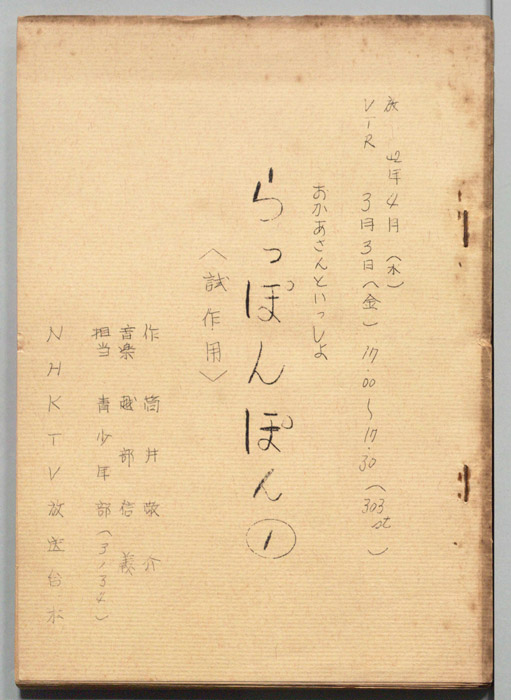 放 42年4月 (木)
VTR 3月3日(金) 17.00〜17.30 (303st)
おかあさんといっしょ
らっぽんぽん ①
〈試作用〉
作 筒井敬介
音楽 越部信義
担当 青少年部(3134)
NHKTV放送台本